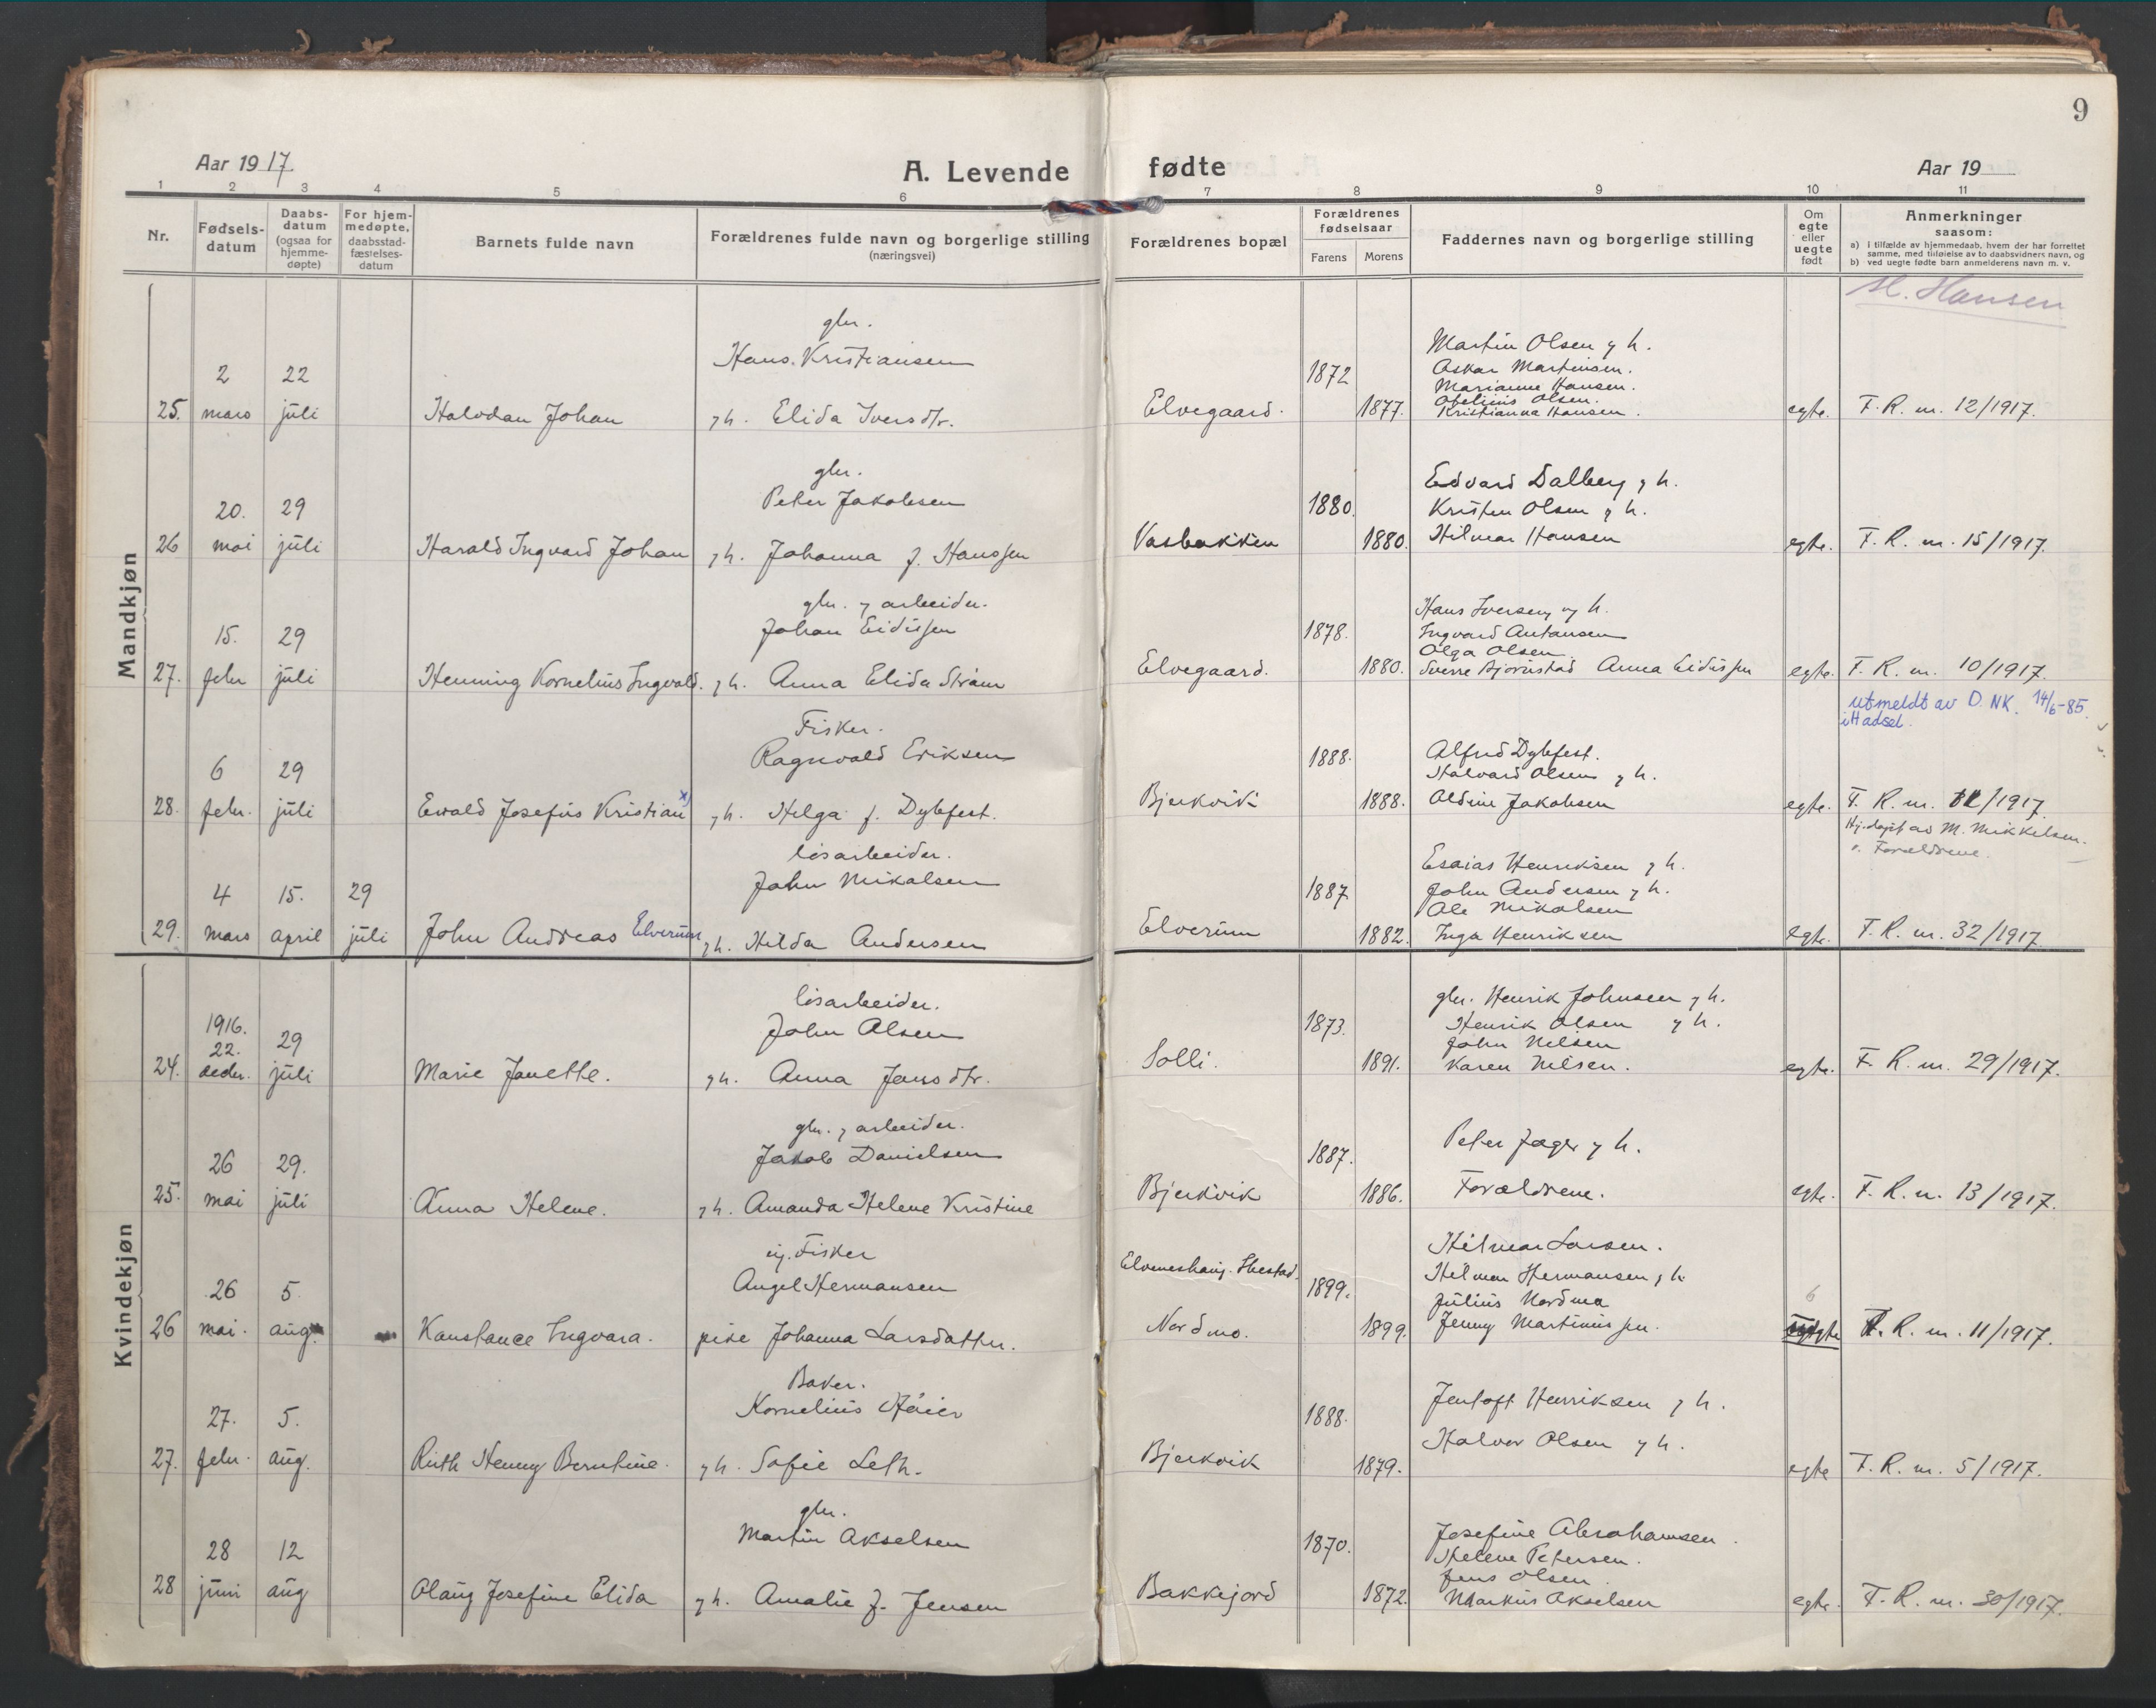 9
Aar 1917
A. Levende fødte
Aar 19
1 2 3 4 5 6 7 8 9 10 11
Nr.
Fødsels-
datum
Daabs-
datum
(ogsaa for
hjemme-
døpte)
For hjem-
medøpte,
daabsstad-
fæstelses-
datum
Barnets fulde navn
Forældrenes fulde navn og borgerlige stilling
(næringsvei)
Forældrenes bopæl
Forældrenes
fødselsaar
Farens Morens
Faddernes navn og borgerlige stilling
Om
egte
eller
uegte
født
Anmerkninger
saasom:
a) i tilfælde av hjemmedaab, hvem der har forrettet
samme, med tilføielse av to daabsvidners navn, og
b) ved uegte fødte barn anmelderens navn m. v.
H. Hansen
Mandkjøn
25.
2
mars
22
juli
Halvdan Johan
gbr.
Hans Kristiansen
y h. Elida Iversdtr.
Elvegaard.
1872
1877.
Martin Olsen y h.
Askar Martinsen.
Marianne Hansen.
Obelinis Olsen.
Kristianna Hansen.
egte.
F. R. nr. 12/1917.
26
20.
mai
29
juli
Harald Ingvard Johan
gbr.
Peter Jakobsen
y h. Johanna f. Hanssen
Vasbakken
1880.
1880.
Edvard Dalberg y h.
Kristen Olsen y h.
Hilmar Hansen
egte.
F. R. nr. 15/1917.
27.
15.
febr
29
juli
Henning Kornelius Ingvald.
gbr. y arbeider.
Johan Eidissen
y h. Anna Elida Strøm
Elvegaard.
1878.
1880.
Hans Iversen y h.
Ingvard Antonsen
Olga Olsen
Sverre Bjørnstad Anna Eidissen
egte.
F. R. nr. 10/1917.
utmeldt av D. NK. 14/6-85.
i Hadsel.
28.
6
febr.
29
juli
Ewald Josefus Kristian x)
Fisker.
Ragnvald Eriksen
y h. Helga f. Dybfest.
Bjerkvik
1888.
1888.
Alfred Dybfest.
Halvard Olsen y h.
Aldine Jakobsen
egte.
F. R. nr. /1917.
Hj. døpt av M. Mikkelsen.
v. Forældrene.
29.
4
mars
15.
april
29
juli
John Andreas Elverum
løsarbeider.
John Mikalsen
y h. Hilda Andersen
Elverum
1887
1882.
Esaias Henriksen y h.
John Andersen y h.
Ole Mikalsen
Inga Henriksen
egte.
F. R. nr. 32/1917
Kvindekjøn
24.
1916.
22.
decbr.
29
juli
Marie Janette.
løsarbeider.
John Olsen
y h. Anna Jensdtr.
Solli.
1873.
1891.
gbr. Henrik Johnsen y h.
Henrik Olsen y h.
John Nilsen
Karen Nilsen.
egte.
F. R. nr. 29/1917.
25.
26
mai
29.
juli
Anna Helene.
gbr. y arbeider.
Jakob Danielsen
y h. Amanda Helene Kristine
Bjerkvik
1887.
1886.
Peter Jager y h.
Forældrene.
egte.
F. R. nr. 13/1917.
26
26
mai.
5.
aug.
Konstance Ingvara.
ug. Fisker
Angel Hermansen
pike Johanna Larsdatter.
Nordmo.
1899.
1899.
Hilmar Larsen.
Hilmar Hermansen y h.
Julius Nordmo
Jenny Martinussen.
6
F. R. nr. 11/1917.
27.
27.
febr.
5.
aug.
Ruth Henny Berntine.
Baker.
Kornelius Høier
y h. Sofie Leth.
Bjerkvik
1888.
1879.
Jentoft Henriksen y h.
Halvor Olsen y h.
egte
F. R. nr. 5/1917.
28
28
juni
12
aug
Olaug Josefine Elida
gbr.
Martin Akselsen
y h. Amalie f. Jensen
Bakkejord
1870.
1872.
Josefine Abrahamsen.
Helene Petersen.
Jens Olsen
Markus Akselsen
egte.
F. R. nr. 30/1917.